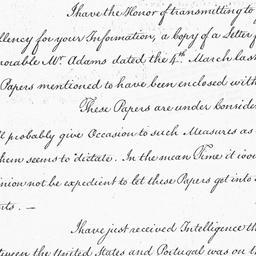 I have the Honor of transmitting to y
llency for your Information, a Copy of a Letter f
orable Mr. Adams dated the 4th. March last
Papers mentioned to have been enclosed with
These Papers are under Conside
ll probably give Occasion to such Measures as
them seems to dictate. In the mean Time it wou
inion not be expedient to let these Papers get into
ts. —
I have just received Intelligence th
between the United States and Portugal was on th